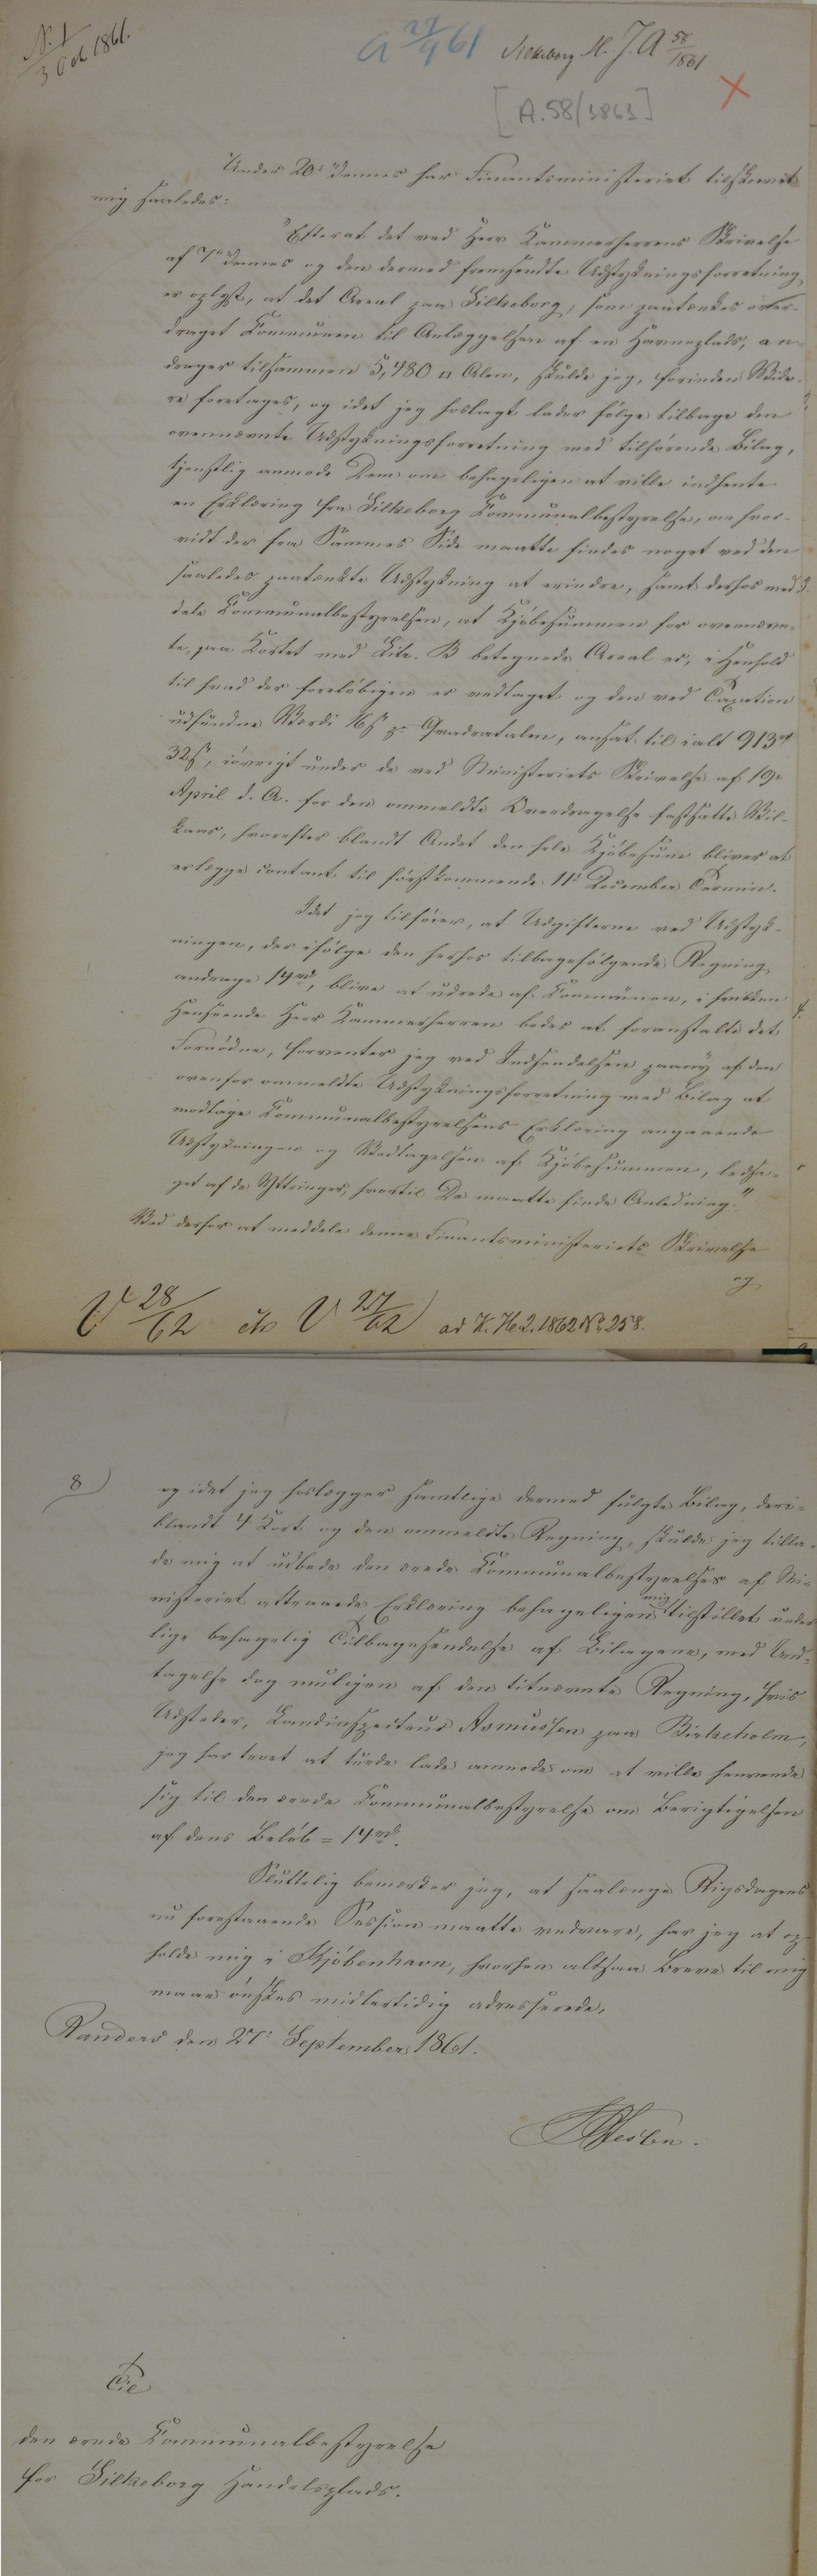 N. 1
3 Octb 1861.
a 27/9 61
Silkeborg H. J. A 58/1861
[A.58/1861]
Under 20de dennes har Finantsministeriet tilskrevet
mig saaledes:
"Efterat det ved Herr Kammerherrens Skrivelse
af 7de dennes og den dermed fremsendte Udstykningsforretning
er oplyst, at det Areal paa Silkeborg, som paatænkes over-
draget Communen til Anlæggelsen af en Havneplads, an-
drager tilsammen 5,480 □ Alen, skulde jeg, forinden Vide-
re foretages, og idet jeg hoslagt lader følge tilbage den
ovennævnte Udstykningsforretning med tilhørende Bilag,
tjenstlig anmode Dem om behageligen at ville indhente
en Erklæring fra Silkeborg Communalbestyrelse, om hvor-
vidt der fra Sammes Side maatte findes noget ved den
saaledes paatænkte Udstykning at erindre, samt derhos med-
dele Communalbestyrelsen, at Kjøbesummen for ovennævn-
te, paa Kortet med Litr. B betegnede Areal er, i Henhold
til hvad der foreløbigen er vedtaget og den ved Taxation
udfundne Værdi 16 ß pr Quadratalen, ansat til ialt 913 rd
32 ß, iøvrigt under de ved Ministeriets Skrivelse af 19de
April d. A. for den ommeldte Overdragelse fastsatte Vil-
kaar, hvorefter blandt Andet den hele Kjøbesum bliver at
erlægge contant til førstkommende 11te December Termin.
Idet jeg tilføier, at Udgifterne ved Udstyk-
ningen, der ifølge den herhos tilbagefølgende Regning
andrage 14 rd, blive at udrede af Communen, i hvilken
Henseende Herr Kammerherren bedes at foranstalte det
Fornødne, forventer jeg ved Indsendelsen paany af den
ovenfor ommeldte Udstykningsforretning med Bilag at
modtage Communalbestyrelsens Erklæring angaaende
Udstykningen og Vedtagelsen af Kjøbesummen, ledsa-
get af de Yttringer, hvortil De maatte finde Anledning."
Ved derfor at meddele denne Finantsministeriets Skrivelse
og
V 28/62 cfr V 27/62 ad K. H. 2. 1862 No 258.
8)
og idet jeg hoslægger samtlige dermed fulgte Bilag, deri-
blandt 4 Kort og den ommeldte Regning, skulde jeg tilla-
de mig at udbede den ærede Communalbestyrelses af Mi-
nisteriet attraaede Erklæring behageligen mig tilstillet under
lige behagelig Tilbagesendelse af Bilagene, med Und-
tagelse dog muligen af den titnævnte Regning, hvis
Udsteder, Landinspecteur Asmussen paa Birkeholm,
jeg har troet at turde lade anmode om at ville henvende
sig til den ærede Communalbestyrelse om Berigtigelsen
af dens Beløb = 14 rd.
Sluttelig bemærker jeg, at saalænge Rigsdagens
nu forestaaende Session maatte vedvare, har jeg at op-
holde mig i Kjøbenhavn, hvorhen altsaa Breve til mig
maae ønskes midlertidig adresserede.
Randers den 27de September 1861.
Til
den ærede Communalbestyrelse
for Silkeborg Handelsplads.